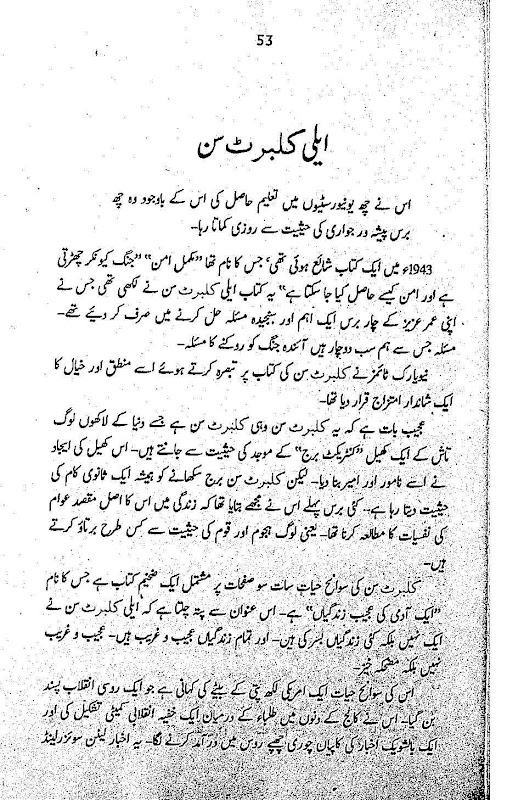 53
ایلی کلبرٹ سن
اس نے چھ یونیورسٹیوں میں تعلیم حاصل کی اس کے باوجود وہ چھ
برس پیشہ ور جواری کی حیثیت سے روزی کماتا رہا۔
1943ء میں ایک کتاب شائع ہوئی تھی‘ جس کا نام تھا ”مکمل امن“ ”جنگ کیونکر چھڑتی
ہے اور امن کیسے حاصل کیا جا سکتا ہے“ یہ کتاب ایلی کلبرٹ سن نے لکھی تھی جس نے
اپنی عمر عزیز کے چار برس ایک اہم اور سنجیدہ مسئلہ حل کرنے میں صرف کر دیئے تھے۔
مسئلہ جس سے ہم سب دوچار ہیں آئندہ جنگ کو روکنے کا مسئلہ۔
نیویارک ٹائمز نے کلبرٹ سن کی کتاب پر تبصرہ کرتے ہوئے اسے منطق اور خیال کا
ایک شاندار امتزاج قرار دیا تھا۔
عجیب بات ہے کہ یہ کلبرٹ سن وہی کلبرٹ سن ہے جسے دنیا کے لاکھوں لوگ
تاش کے ایک کھیل ”کنٹریکٹ برج“ کے موجد کی حیثیت سے جانتے ہیں۔ اس کھیل کی ایجاد
نے اسے نامور اور امیر بنا دیا۔ لیکن کلبرٹ سن برج سکھانے کو ہمیشہ ایک ثانوی کام کی
حیثیت دیتا رہا ہے۔ کئی برس پہلے اس نے مجھے بتایا تھا کہ زندگی میں اس کا اصل مقصد عوام
کی نفسیات کا مطالعہ کرنا تھا۔ یعنی لوگ ہجوم اور قوم کی حیثیت سے کس طرح برتاؤ کرتے
ہیں۔
کلبرٹ سن کی سوانح حیات سات سو صفحات پر مشتمل ایک ضخیم کتاب ہے جس کا نام
”ایک آدمی کی عجیب زندگیاں“ ہے۔ اس عنوان سے پتہ چلتا ہے کہ ایلی کلبرٹ سن نے
ایک نہیں بلکہ کئی زندگیاں بسر کی ہیں۔ اور تمام زندگیاں عجیب و غریب ہیں۔ عجیب و غریب
نہیں بلکہ مضحکہ خیز۔
اس کی سوانح حیات ایک امریکی لکھ پتی کے بیٹے کی کہانی ہے جو ایک روسی انقلاب پسند
بن گیا۔ اس نے کالج کے دنوں میں طلباء کے درمیان ایک خفیہ انقلابی کمیٹی تشکیل کی اور
ایک بالشویک اخبار کی کاپیاں چوری چھپے روس میں درآمد کرنے لگا۔ یہ اخبار لینن سوئزرلینڈ